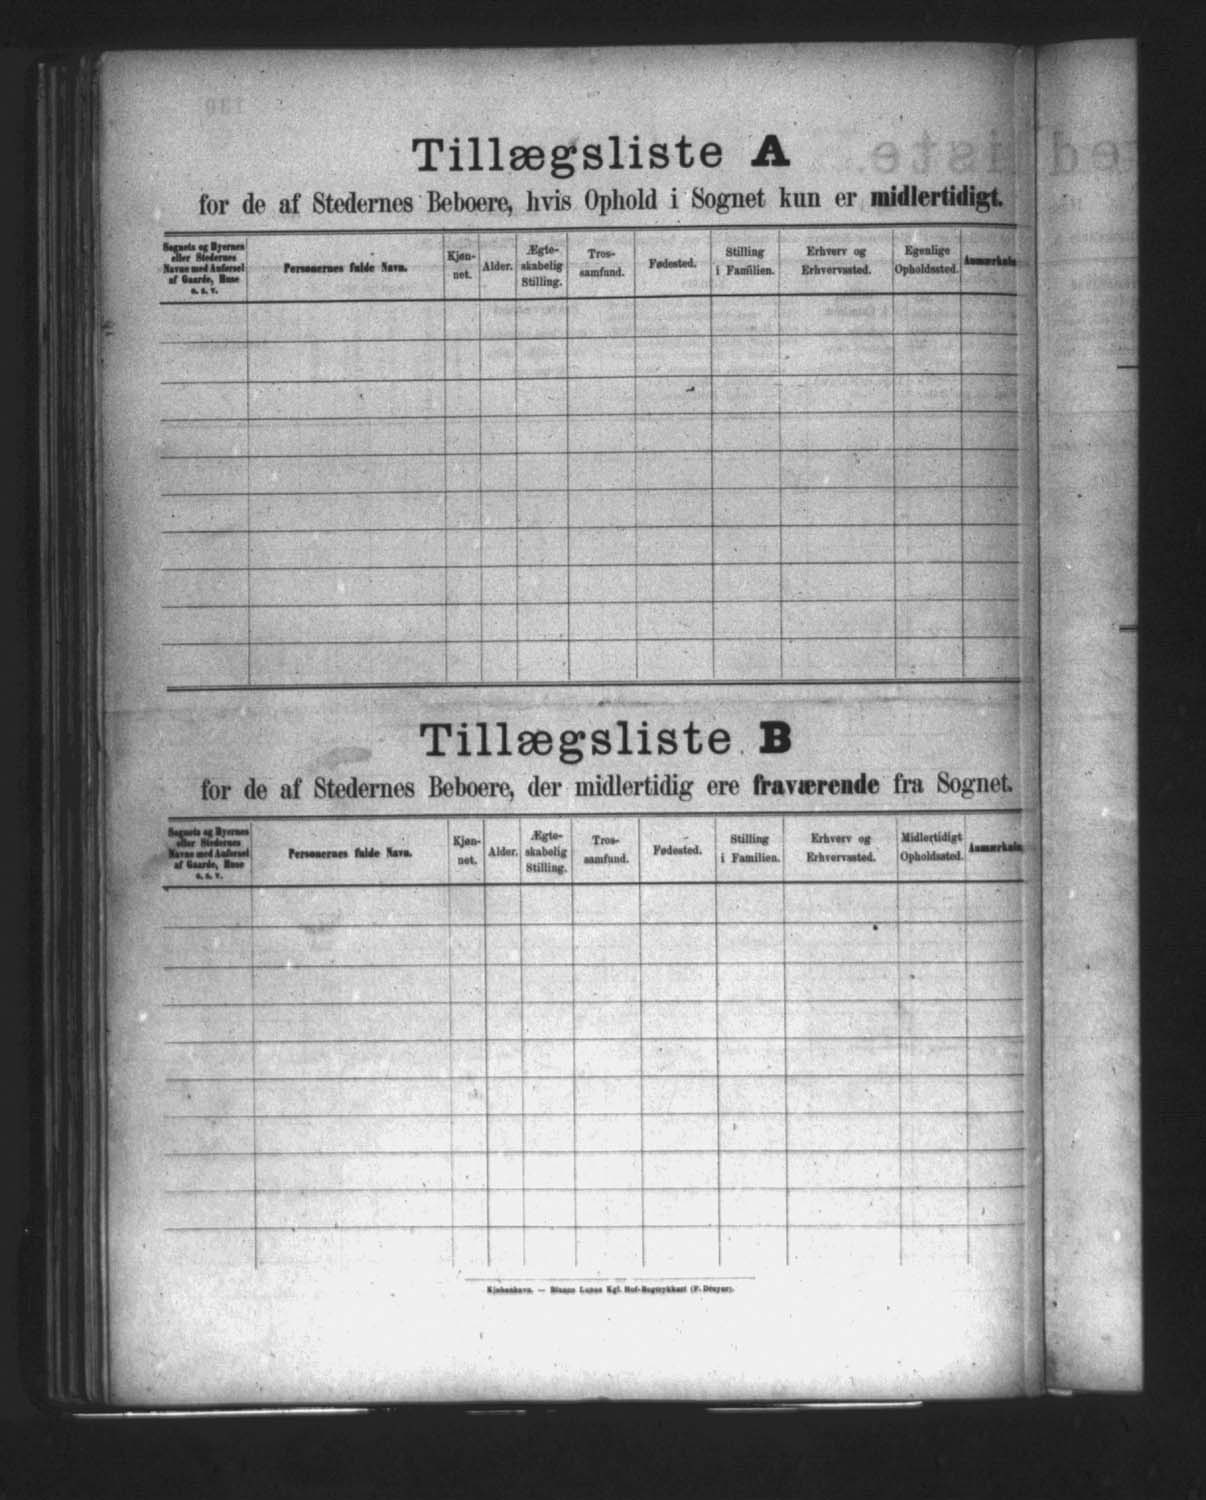 Tillægsliste A
for de af Stedernes Beboere, hvis Ophold i Sognet kun er midlertidigt.
Sognets og Byernes
eller Stedernes
Navne med Anførsel
af Gaarde, Huse
o. s. v.
Personernes fulde Navn.
Kjøn-
net.
Alder.
Ægte-
skabelig
Stilling.
Tros-
samfund.
Fødested.
Stilling
i Familien.
Erhverv og
Erhvervssted.
Egenlige
Opholdssted.
Anmærkain
Tillægsliste B
for de af Stedernes Beboere, der midlertidig ere fraværende fra Sognet.
Sognets og Byernes
eller Stedernes
Navne med Anførsel
af Gaarde, Huse
o. s. v.
Personernes fulde Navn.
Kjøn-
net.
Alder.
Ægte-
skabelig
Stilling.
Tros-
samfund.
Fødested.
Stilling
i Familien.
Erhverv og
Erhvervssted.
Midlertidigt
Opholdssted.
Anmærkain
Kjøbenhavn. — Bianco Lunos Kgl. Hof-Bogtrykkeri (F. Dreyer).